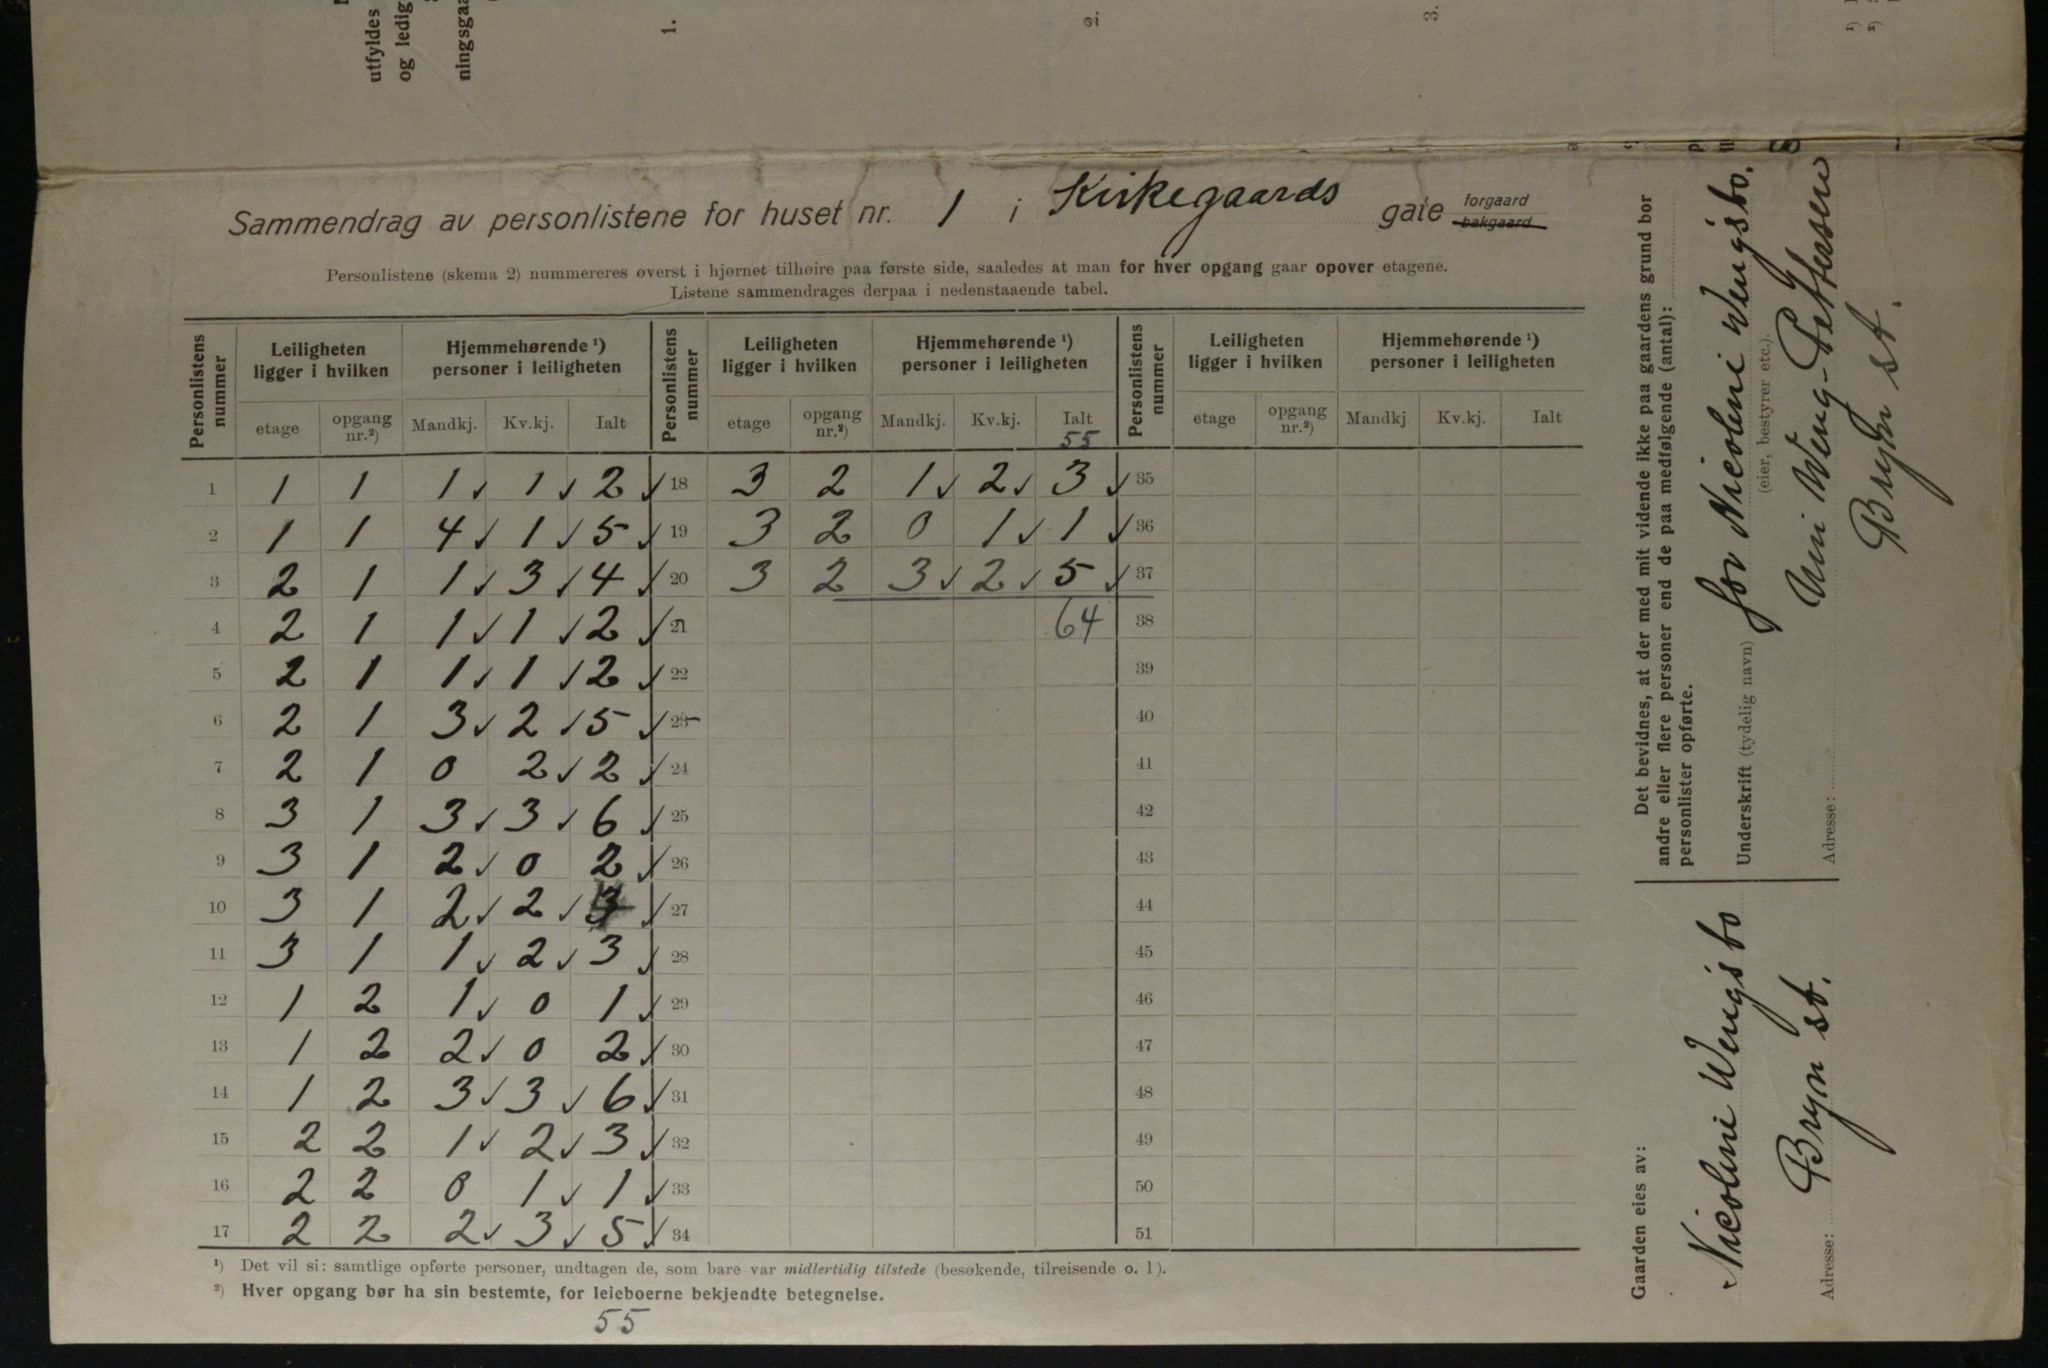 utfyldes
og ledig
ningsgaa
1.
2.
3.
Sammendrag av personlistene for huset nr. 1 i Kirkegaards gate forgaard bakgaard
Personlistene (skema 2) nummereres øverst i hjørnet tilhøire paa første side, saaledes at man for hver opgang gaar opover etagene.
Listene sammendrages derpaa i nedenstaaende tabel.
Personlistens nummer | Leiligheten ligger i hvilken | Hjemmehørende ¹) personer i leiligheten | Personlistens nummer | Leiligheten ligger i hvilken | Hjemmehørende ¹) personer i leiligheten | Personlistens nummer | Leiligheten ligger i hvilken | Hjemmehørende ¹) personer i leiligheten
etage | opgang nr.²) | Mandkj. | Kv.kj. | Ialt | etage | opgang nr.²) | Mandkj. | Kv.kj. | Ialt | etage | opgang nr.²) | Mandkj. | Kv.kj. | Ialt
55
1 1 1 1 ✓ 1 ✓ 2 ✓ 18 3 2 1 ✓ 2 ✓ 3 ✓ 35
2 1 1 4 ✓ 1 ✓ 5 ✓ 19 3 2 0 1 ✓ 1 ✓ 36
3 2 1 1 ✓ 3 ✓ 4 ✓ 20 3 2 3 ✓ 2 ✓ 5 ✓ 37
4 2 1 1 ✓ 1 ✓ 2 ✓ 21 64 38
5 2 1 1 ✓ 1 ✓ 2 ✓ 22 39
6 2 1 3 ✓ 2 ✓ 5 ✓ 23 40
7 2 1 0 2 ✓ 2 ✓ 24 41
8 3 1 3 ✓ 3 ✓ 6 ✓ 25 42
9 3 1 2 ✓ 0 2 ✓ 26 43
10 3 1 2 ✓ 2 ✓ ✓ 27 44
11 3 1 1 ✓ 2 ✓ 3 ✓ 28 45
12 1 2 1 ✓ 0 1 ✓ 29 46
13 1 2 2 ✓ 0 2 ✓ 30 47
14 1 2 3 ✓ 3 ✓ 6 ✓ 31 48
15 2 2 1 ✓ 2 ✓ 3 ✓ 32 49
16 2 2 0 1 ✓ 1 ✓ 33 50
17 2 2 2 ✓ 3 ✓ 5 ✓ 34 51
¹) Det vil si: samtlige opførte personer, undtagen de, som bare var midlertidig tilstede (besøkende, tilreisende o. l).
²) Hver opgang bør ha sin bestemte, for leieboerne bekjendte betegnelse.
55
Det bevidnes, at der med mit vidende ikke paa gaardens grund bor
andre eller flere personer end de paa medfølgende (antal):
personlister opførte.
Underskrift (tydelig navn) for Nicoline Wengsbo.
(eier, bestyrer etc.).
Weng-Pettersen
Adresse: Bryn st.
Gaarden eies av:
Nicoline Wengsbo
Adresse: Bryn st.